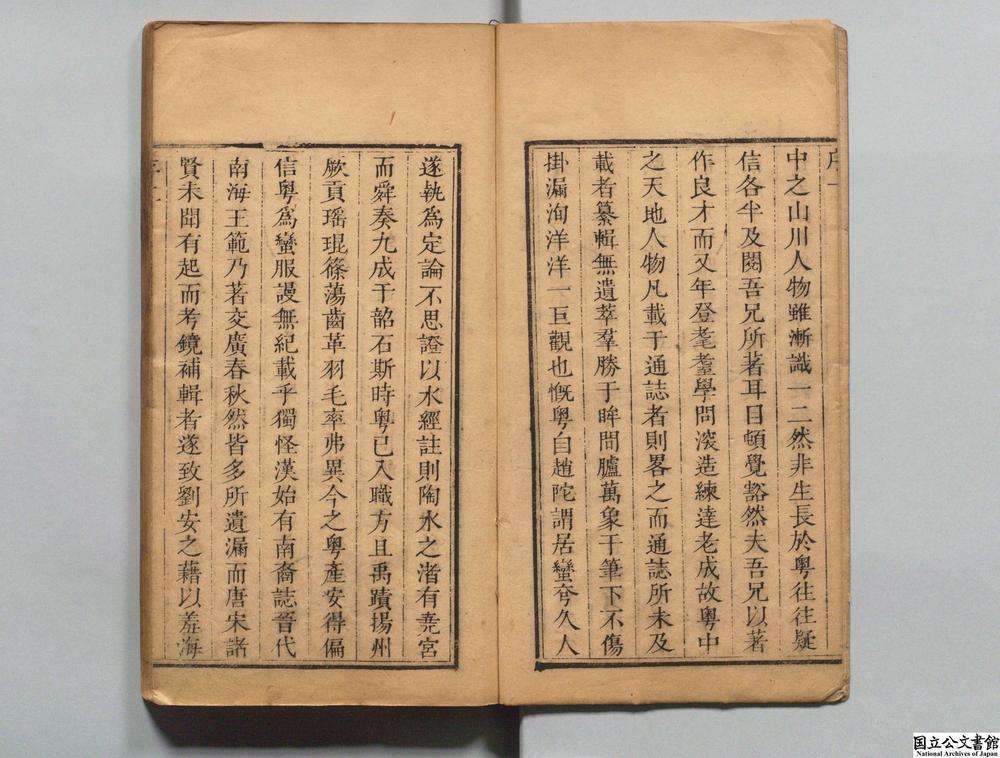 序一
中之山川人物雖漸識一二然非生長於粵往往疑
信各半及閱吾兄所著耳目頓覺豁然夫吾兄以著
作良才而又年登耄耋學問滚造練達老成故粵中
之天地人物凡載于通誌者則畧之而通誌所未及
載者纂輯無遺萃羣勝于眸間臚萬象于筆下不傷
掛漏洵洋洋一巨觀也慨粵自趙陀謂居蠻夸久人
遂執為定論不思證以水經註則陶水之渚有堯宮
而舜奏九成于韶石斯時粵已入職方且禹蹟揚州
厥貢瑶琨篠蕩齒革羽毛率弗異今之粵產安得偏
信粵為蠻服謾無紀載乎獨怪漢始有南裔誌晉代
南海王範乃著交廣春秋然皆多所遺漏而唐宋諸
賢未聞有起而考鏡補輯者遂致劉安之藉以羞海
国立公文書館
National Archives of Japan